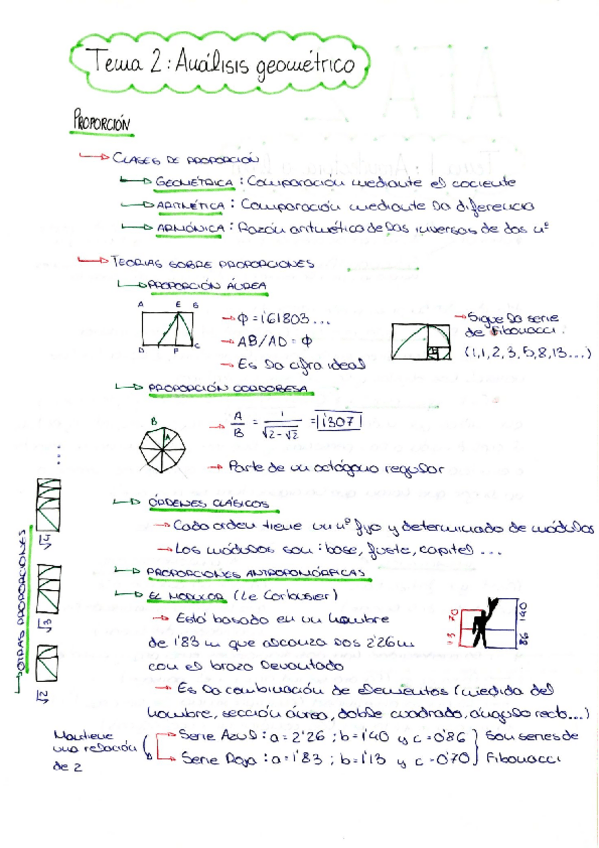 Tema 2: Análisis geométrico
PROPORCIÓN
CLASES DE PROPORCIÓN
GEOMÉTRICA: Comparación mediante el cociente
ARITMÉTICA: Comparación mediante la diferencia
ARMÓNICA: Razón aritmética de las inversas de dos nº
TEORIAS SOBRE PROPORCIONES
PROPORCIÓN ÁUREA
A E B
D F C
Φ = 1'61803...
AB/AD = Φ
Es la cifra ideal
Sigue la serie
de Fibonacci:
(1,1,2,3,5,8,13...)
PROPORCIÓN CORDOBESA
B
A
A/B = 1/√2-√2 = 1'307
Parte de un octógono regular
ÓRDENES CLÁSICOS
Cada orden tiene un nº fijo y determinado de módulos
Los módulos son: base, fuste, capitel ...
PROPORCIONES ANTROPOMÓRFICAS
EL MODULOR (Le Corbusier)
Está basado en un hombre
de 1'83 m que alcanza los 2'26m
con el brazo levantado
70
113
140
86
Es la combinación de elementos (medida del
hombre, sección áurea, doble cuadrado, ángulo recto...)
Mantiene
una relación
de 2
Serie Azul: a = 2'26 ; b = 1'40 y c = 0'86
Serie Roja: a = 1'83 ; b = 1'13 y c = 0'70
Son series de
Fibonacci
OTRAS PROPORCIONES
√2
√3
√4
...